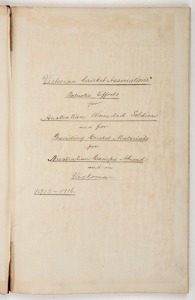 Victorian Cricket Association's
Patriotic Efforts
for
Australian Wounded Soldiers
and for
Providing Cricket Materials
for
Australian Camps Abroad
and in
Victoria
1915-1916